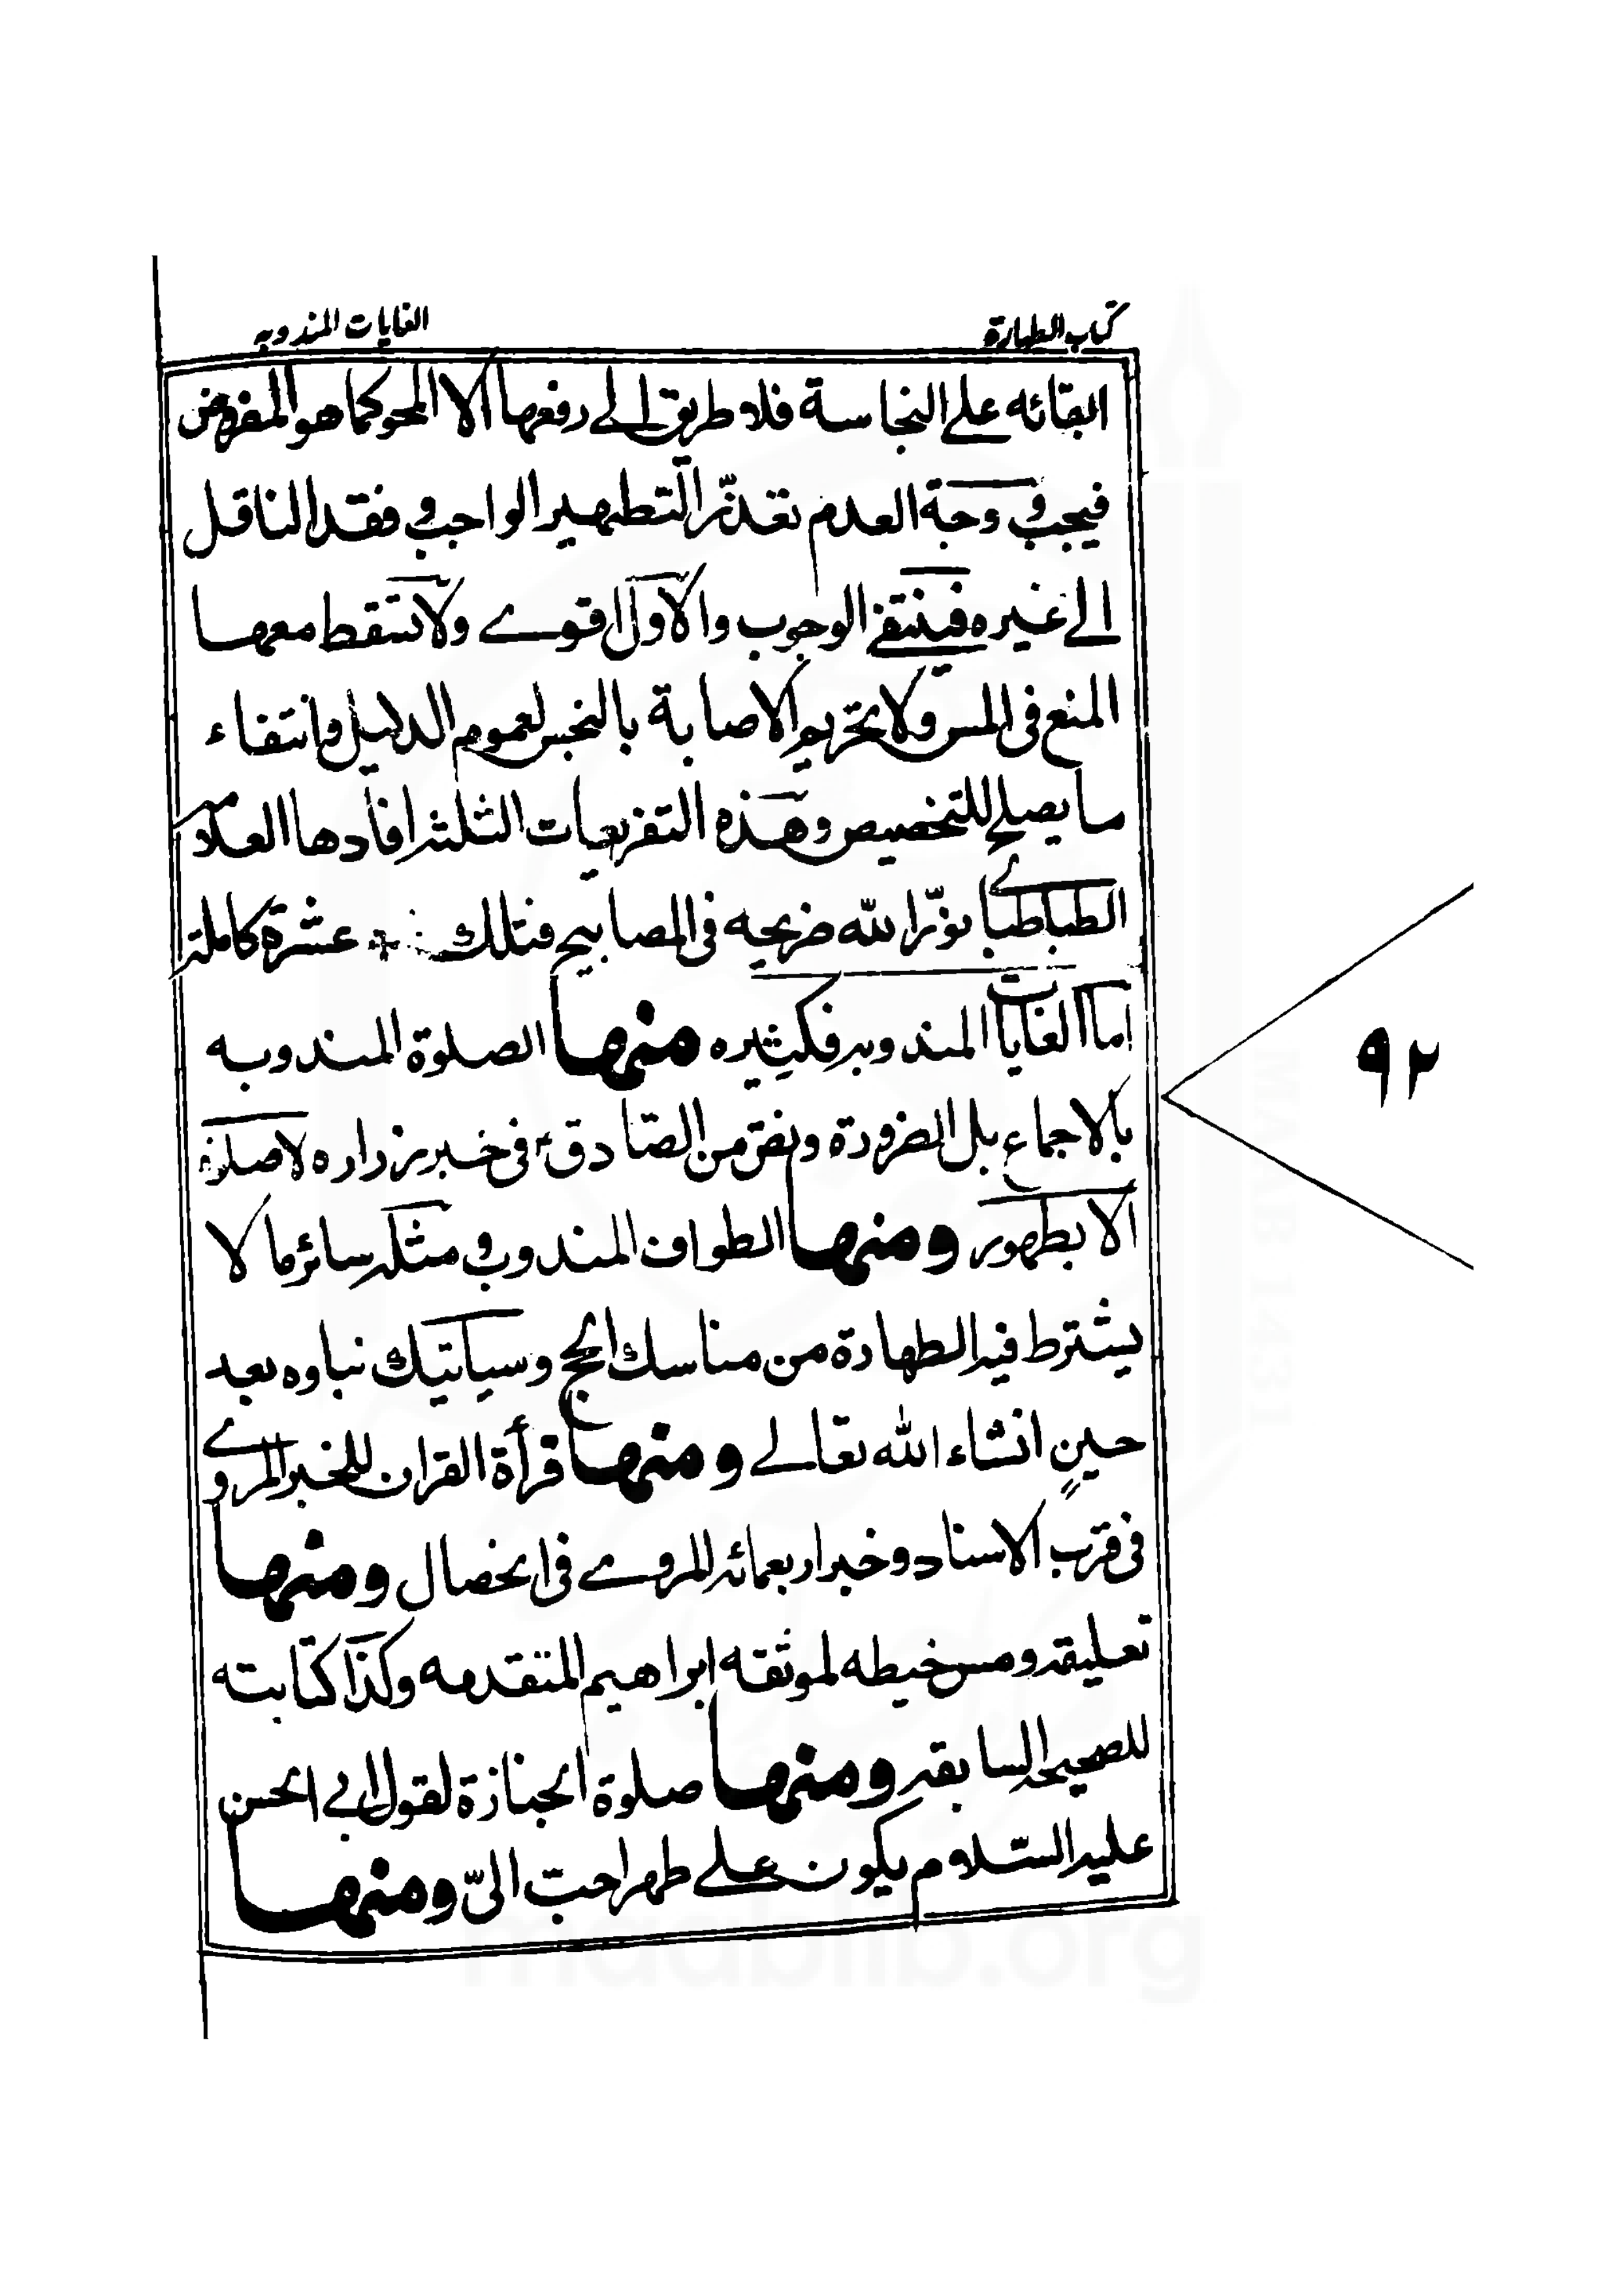 كتاب الطهارة
الغايات المندوبه
ابقائه على النجاسة فلا طريق الى رفعها الا المحو كما هو المفروض
فيجب و وجه العدم تعذّر التطهير الواجب و فقد الناقل
الى غيره فينتفي الوجوب والاول اقوى ولا تسقط معها
المنع في المس ولا تحريم الاصابة بالنجس لعموم الدليل وانتفاء
ما يصلح للتخصيص وهذه التفريعات الثلثه افادها العلامه
الطباطبائي نوّر الله ضريحه في المصابيح فتلك عشرة كاملة
اما الغايات المندوبه فكثيره منها الصلوة المندوبه
بالاجماع بل الضرورة ونصّ من الصّادق ؑ في خبر زراره لا صلوة
الا بطهور ومنها الطواف المندوب و مثله سائر ما لا
يشترط فيه الطهارة من مناسك الحج وسياتيك نباوه بعد
حينٍ انشاء الله تعالى ومنها قرأة القران للخبر المروي
في قرب الاسناد وخبر اربعمائه المروى في الخصال ومنها
تعليقه ومس خيطه لموثقه ابراهيم المتقدمه وكذا كتابته
للصحيحه السابقه ومنها صلوة الجنازة لقول ابي الحسن
عليه السّلام يكون على طهر احبّ الىّ ومنها
٩٢
MAAB 1431
maablib.org